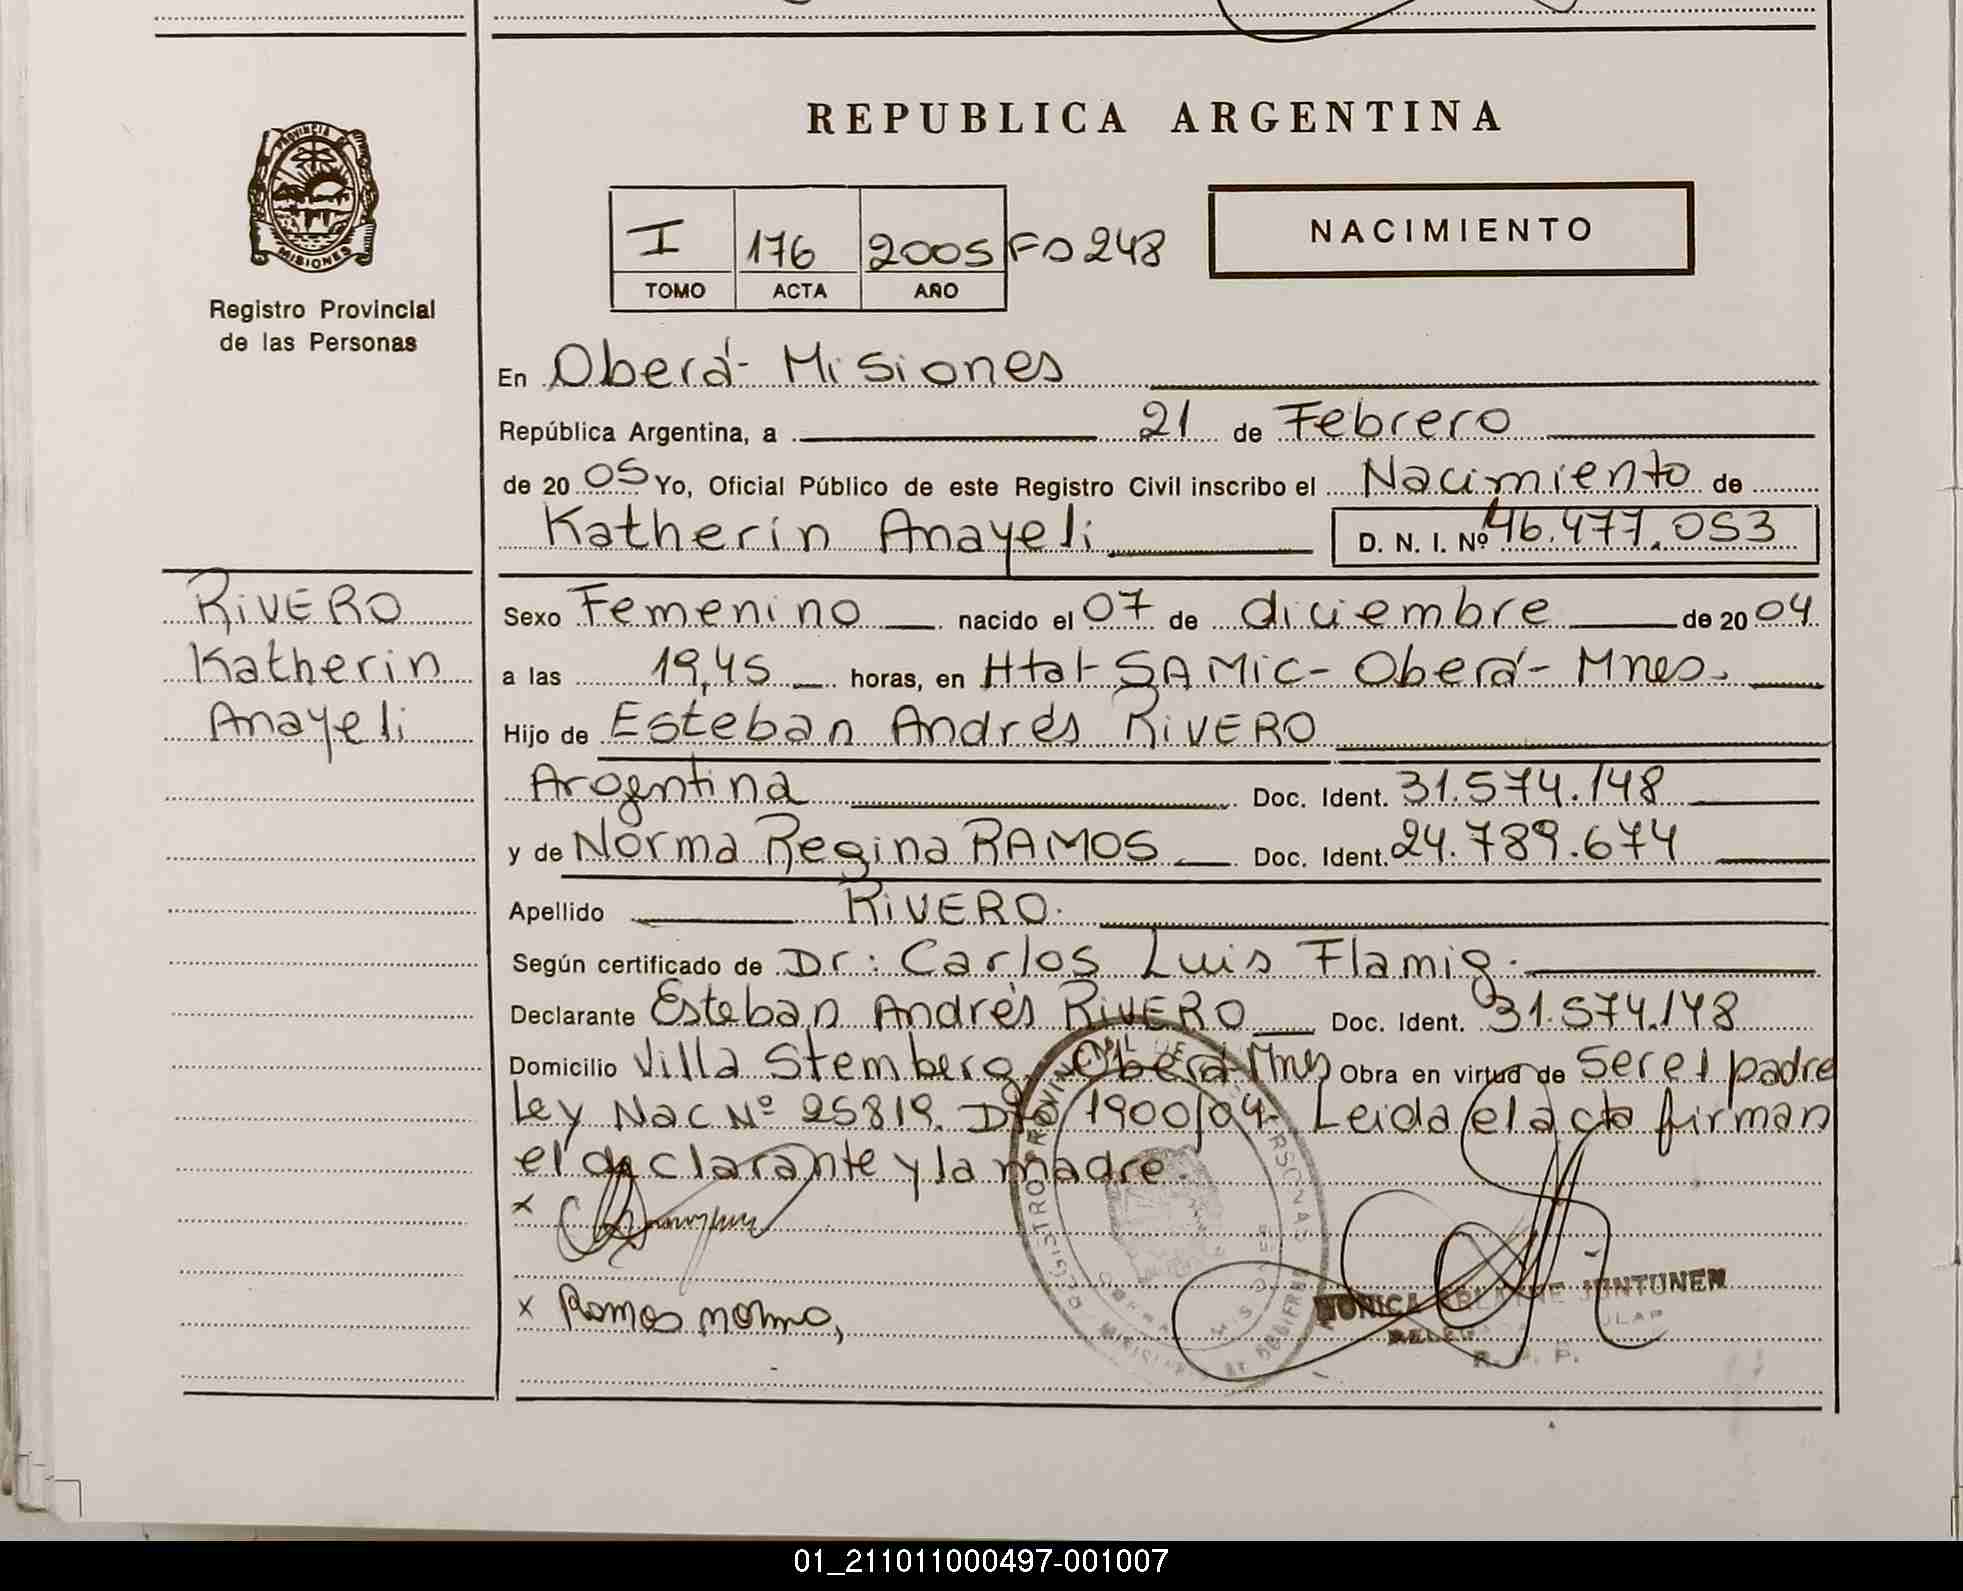 REPUBLICA ARGENTINA
PROVINCIA
MISIONES
Registro Provincial
de las Personas
I 176 2005 Fo 248
TOMO ACTA AÑO
NACIMIENTO
En Oberá - Misiones
República Argentina, a 21 de Febrero
de 20 05 Yo, Oficial Público de este Registro Civil inscribo el Nacimiento de
Katherin Anayeli D. N. I. Nº 46.477.053
RiVERO
Katherin
Anayeli
Sexo Femenino nacido el 07 de diciembre de 20 04
a las 19,45 horas, en Htal SAMIC - Oberá - Mnes.
Hijo de Esteban Andrés RiVERO
Argentina Doc. Ident. 31.574.148
y de Norma Regina RAMOS Doc. Ident. 24.789.674
Apellido RiVERO.
Según certificado de Dr: Carlos Luis Flamig.
Declarante Esteban Andrés RiVERO Doc. Ident. 31.574.148
Domicilio Villa Stemberg Oberá Mnes Obra en virtud de Ser el padre
Ley Nac Nº 25819. Dto 1900/04. Leida el acta firman
el declarante y la madre.
x
x Ramos norma,
MONICA JUNTUNEN
R. P. P.
01_211011000497-001007